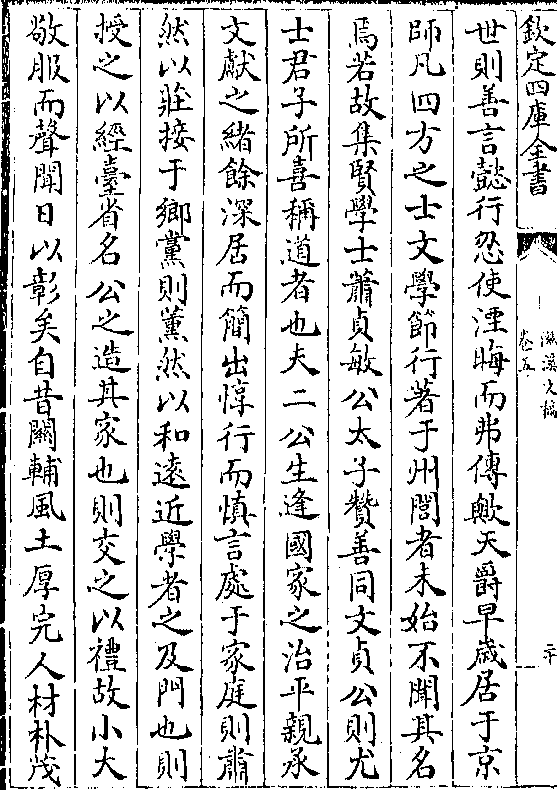 欽定四庫全書
滋溪文稿
卷五
二十
世則善言懿行忍使湮晦而弗傳歟天爵早歲居于京
師凡四方之士文學節行著于州閭者未始不聞其名
焉若故集賢學士蕭貞敏公太子贊善同文貞公則尤
士君子所喜稱道者也夫二公生逢國家之治平親承
文獻之緒餘深居而簡出惇行而慎言處于家庭則肅
然以莊接于鄉黨則薰然以和遠近學者之及門也則
授之以經臺省名公之造其家也則交之以禮故小大
敬服而聲聞日以彰矣自昔關輔風土厚完人材朴茂